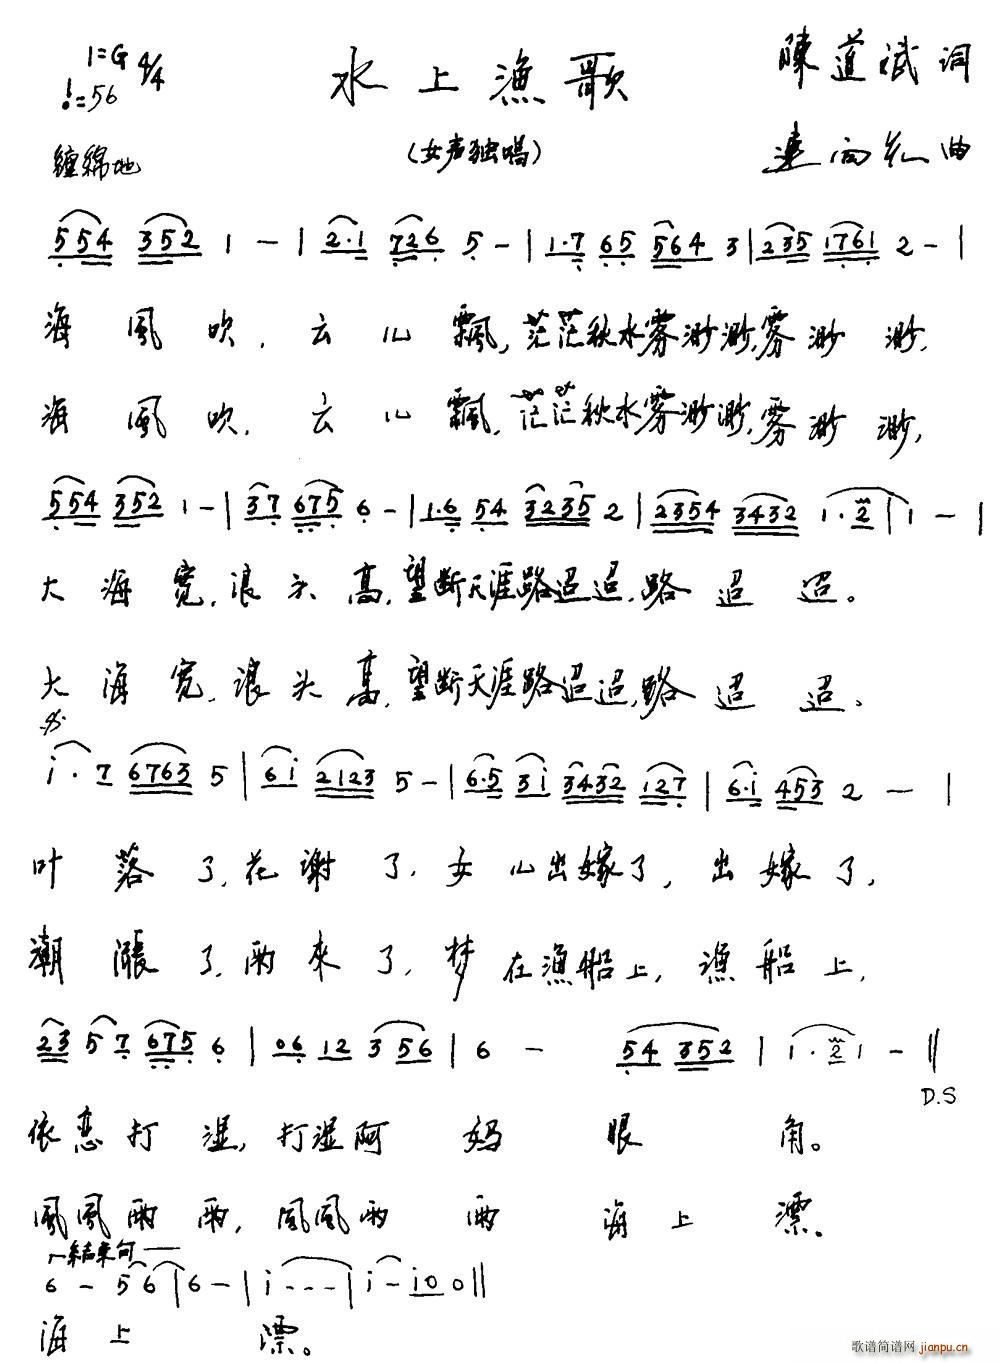 1=G 4/4
水上漁歌
陳道斌 词
♩=56
缠綿地
(女声独唱)
連向紅 曲
554 352 1 - | 2·1 726 5 - | 1·7 65 564 3 | 235 1761 2 - |
海風吹，云儿飄，茫茫秋水雾渺渺，雾渺渺，
海風吹，云儿飄，茫茫秋水雾渺渺，雾渺渺，
554 352 1 - | 37 675 6 - | 1·6 54 3235 2 | 2354 3432 1·2 | 1 - |
大海宽，浪头高，望断天涯路迢迢，路迢迢。
大海宽，浪头高，望断天涯路迢迢，路迢迢。
i·7 6763 5 | 6i 2123 5 - | 6·5 3i 3432 127 | 6·i 453 2 - |
叶落了，花谢了，女儿出嫁了，出嫁了，
潮漲了，雨來了，梦在漁船上，漁船上，
23 57 675 6 | 06 12 3 56 | 6 - 54 352 | 1·2 1 - ‖
D.S
依恋打湿，打湿阿妈眼角。
風風雨雨，風風雨雨海上漂。
結束句
6 - 56 | 6 - | i - - - | i - i00 ‖
海上漂。
歌谱简谱网 jianpu.cn